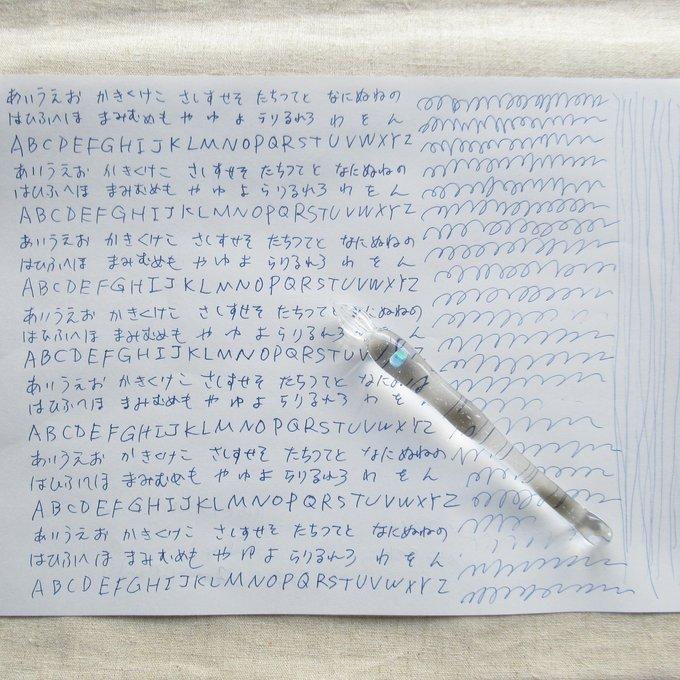 あいうえお かきくけこ さしすせそ たちつてと なにぬねの
はひふへほ まみむめも や ゆ よ らりるれろ わ を ん
ABCDEFGHIJKLMNOPQRSTUVWXYZ
あいうえお かきくけこ さしすせそ たちつてと なにぬねの
はひふへほ まみむめも や ゆ よ らりるれろ わ を ん
ABCDEFGHIJKLMNOPQRSTUVWXYZ
あいうえお かきくけこ さしすせそ たちつてと なにぬねの
はひふへほ まみむめも や ゆ よ らりるれろ わ を ん
ABCDEFGHIJKLMNOPQRSTUVWXYZ
あいうえお かきくけこ さしすせそ たちつて にぬねの
はひふへほ まみむめも や ゆ よ らりるれろ を ん
ABCDEFGHIJKLMNOPQRSTUV XYZ
あいうえお かきくけこ さしすせそ たちつてと なに
はひふへほ まみむめも や ゆ よ らりるれろ わ を
ABCDEFGHIJKLMNOPQRSTUVWXYZ
あいうえお かきくけこ さしすせそ たちつてと なにぬねの
はひふへほ まみむめも や ゆ よ らりるれろ わ を ん
ABCDEFGHIJKLMNOPQRSTUVWXYZ
あいうえお かきくけこ さしすせそ たちつてと なにぬねの
はひふへほ まみむめも や ゆ よ らりるれろ わ を ん
ABCDEFGHIJKLMNOPQRSTUVWXYZ